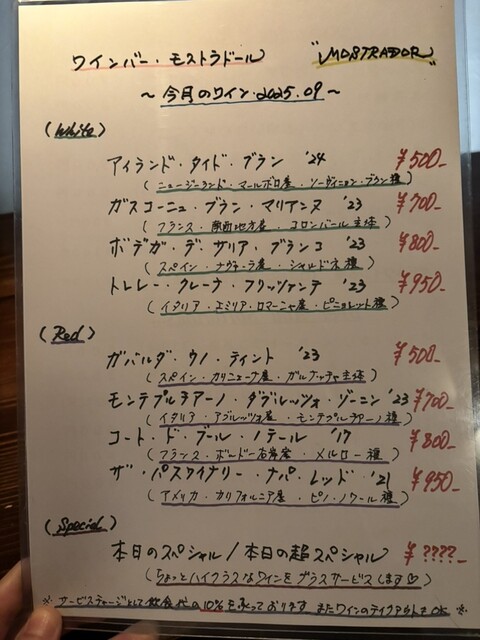 ワインバー・モストラドール "MOSTRADOR"
～今月のワイン.2025.09～
(White)
アイランド・タイド・ブラン '24 ¥500-
(ニュージーランド・マールボロ産・ソーヴィニョン・ブラン種)
ガスコーニュ・ブラン・マリアンヌ '23 ¥700-
(フランス・南西地方産・コロンバール主体)
ボデガ・デ・サリア・ブランコ '23 ¥800-
(スペイン・ナヴァーラ産・シャルドネ種)
トレレー・クレーナ・フリッツァンテ '23 ¥950-
(イタリア・エミリア・ロマーニャ産・ピニョレット種)
(Red)
ガバルダ・ウノ・ティント '23 ¥500-
(スペイン・カリニェーナ産・ガルナッチャ主体)
モンテプルチアーノ・ダブルッツォ・ゾーニン '23 ¥700-
(イタリア・アブルッツォ産・モンテプルチアーノ種)
コート・ド・ブール・ノテール '17 ¥800-
(フランス・ボルドー右岸産・メルロー種)
ザ・パスワイナリー・ナパ・レッド '21 ¥950-
(アメリカ・カリフォルニア産・ピノ・ノワール種)
(Special)
本日のスペシャル/本日の超スペシャル ¥????-
(ちょっとハイクラスなワインをグラスサービスします♡)
※サービスチャージとして飲食代の10%を承っております またワインのテイクアウトもOK ※